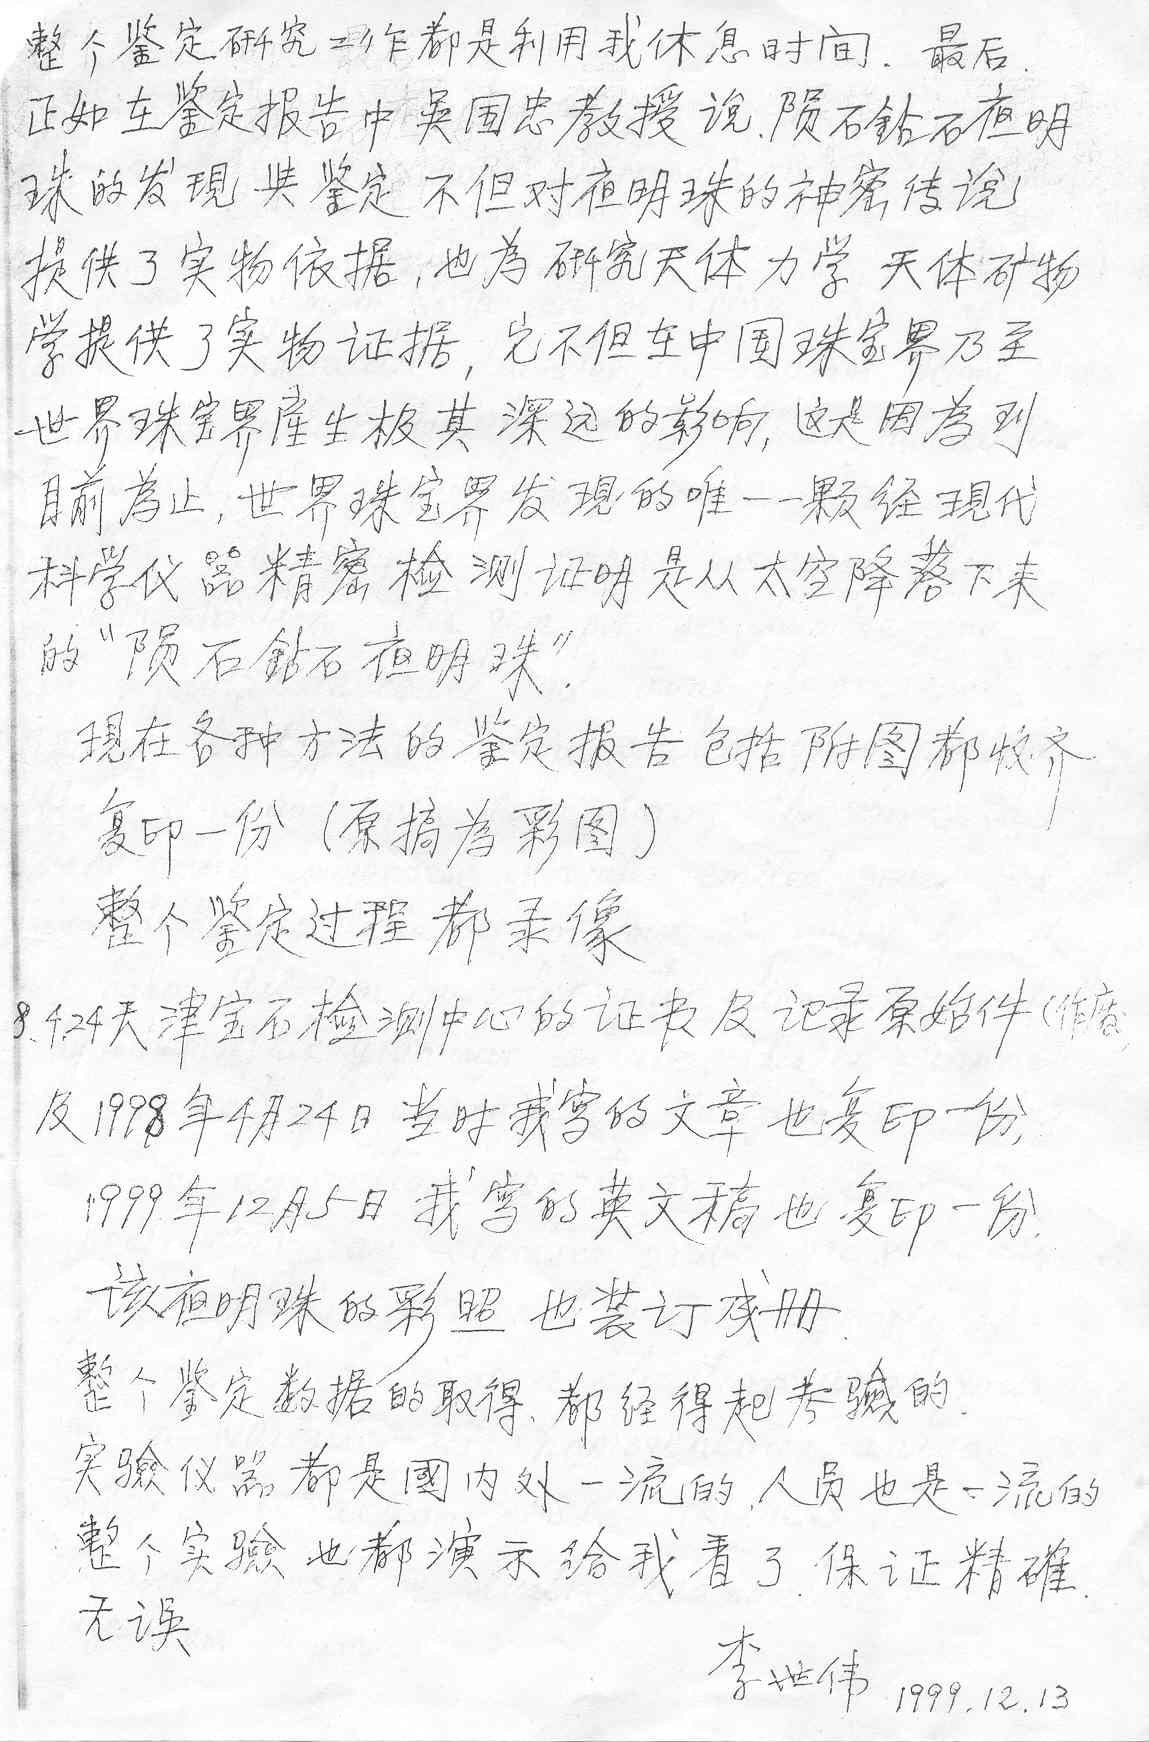 整个鉴定研究工作都是利用我休息时间. 最后.
正如在鉴定报告中吴国忠教授说、陨石鉆石夜明
珠的发現与鉴定不但对夜明珠的神密传说
提供了实物依据,也為研究天体力学 天体矿物
学提供了实物证据,它不但在中国珠宝界乃至
世界珠宝界產生极其深远的影响,这是因為到
目前為止,世界珠宝界发現的唯一一颗经現代
科学仪器精密检测证明是从太空降落下来
的“陨石鉆石夜明珠”.
現在各种方法的鉴定报告包括附图都收齐
复印一份(原搞為彩图)
整个鉴定过程都录像
8.4.24天津宝石检测中心的证书及记录原始件(作廢)
及1998年4月24日当时我写的文章也复印一份,
1999年12月5日我写的英文稿也复印一份.
该夜明珠的彩照也装订成册.
整个鉴定数据的取得、都经得起考驗的.
实驗仪器都是國内外一流的,人员也是一流的
整个实驗也都演示给我看了.保证精確.
无误
李世伟 1999.12.13